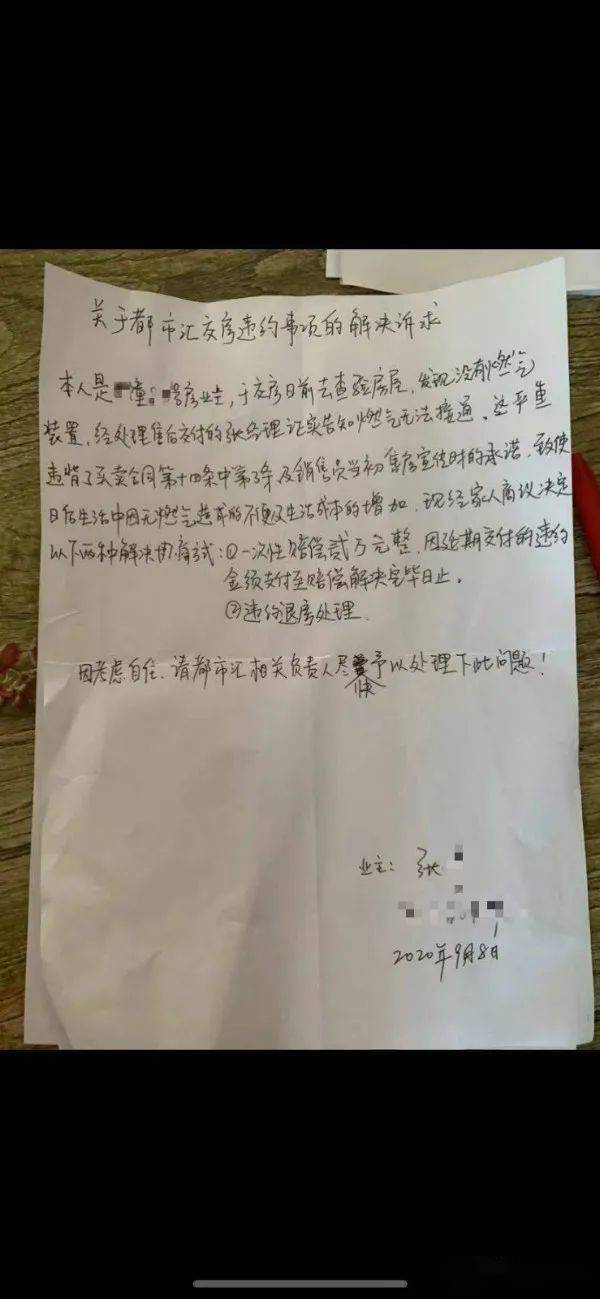 关于都市汇交房违约事项的解决诉求
本人是 幢 房业主，于交房日前去查验房屋，发现没有燃气
装置，经处理售后交付的张经理证实告知燃气无法接通，这严重
违背了买卖合同第十四条中第3条及销售员当初售房宣传时的承诺，致使
日后生活中因无燃气造成的不便及生活成本的增加，现经家人商议决定
以下两种解决方式：①一次性赔偿贰万元整，因延期交付的违约
金须支付至赔偿解决完毕日止。
②违约退房处理
因考虑自住，请都市汇相关负责人尽快予以处理下此问题！
业主：张
2020年9月8日